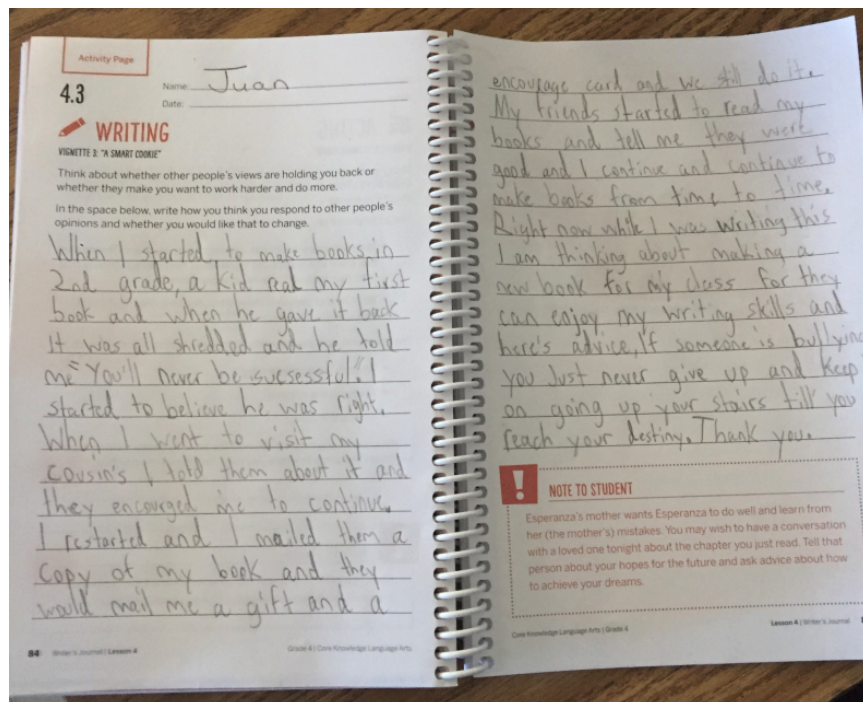 Activity Page
4.3
Name: Juan
Date:
WRITING
VIGNETTE 3: "A SMART COOKIE"
Think about whether other people's views are holding you back or
whether they make you want to work harder and do more.
In the space below, write how you think you respond to other people's
opinions and whether you would like that to change.
When I started to make books in
2nd grade, a kid read my first
book and when he gave it back
It was all shredded and he told
me "You'll never be sucsessful." I
started to believe he was right.
When I went to visit my
cousin's I told them about it and
they encourged me to continue.
I restarted and I mailed them a
copy of my book and they
would mail me a gift and a
84 Writer's Journal | Lesson 4
Grade 4 | Core Knowledge Language Arts
encourage card and we still do it.
My friends started to read my
books and tell me they were
good and I continue and continue to
make books from time to time.
Right now while I was writing this
I am thinking about making a
new book for my class for they
can enjoy my writing skills and
here's advice, If someone is bullying
you Just never give up and Keep
on going up your stairs till you
reach your destiny. Thank you.
!
NOTE TO STUDENT
Esperanza's mother wants Esperanza to do well and learn from
her (the mother's) mistakes. You may wish to have a conversation
with a loved one tonight about the chapter you just read. Tell that
person about your hopes for the future and ask advice about how
to achieve your dreams.
Core Knowledge Language Arts | Grade 4
Lesson 4 | Writer's Journal